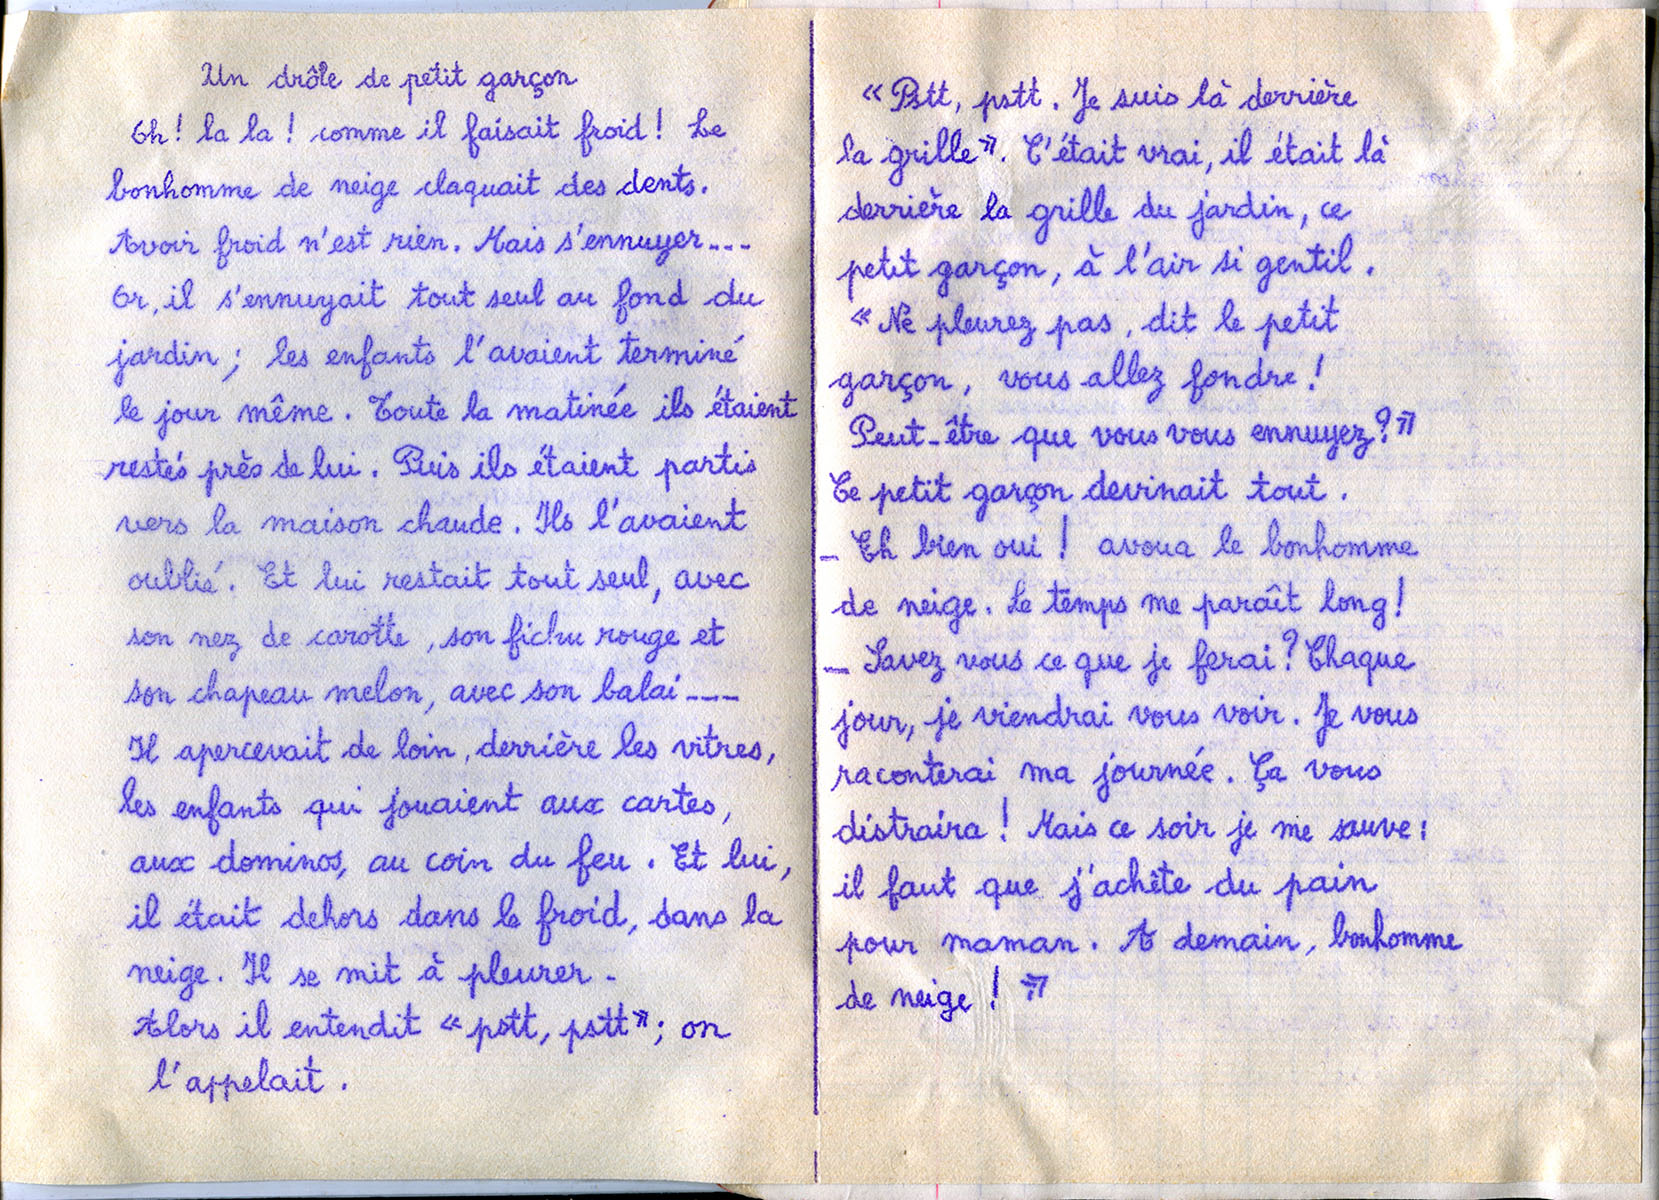 Un drôle de petit garçon
Oh! la la! comme il faisait froid! Le
bonhomme de neige claquait des dents.
Avoir froid n'est rien. Mais s'ennuyer---
Or, il s'ennuyait tout seul au fond du
jardin; les enfants l'avaient terminé
le jour même. Toute la matinée ils étaient
restés près de lui. Puis ils étaient partis
vers la maison chaude. Ils l'avaient
oublié. Et lui restait tout seul, avec
son nez de carotte, son fichu rouge et
son chapeau melon, avec son balai---
Il apercevait de loin, derrière les vitres,
les enfants qui jouaient aux cartes,
aux dominos, au coin du feu. Et lui,
il était dehors dans le froid, dans la
neige. Il se mit à pleurer-
Alors il entendit « pstt, pstt »; on
l'appelait.
« Pstt, pstt. Je suis là derrière
la grille ». C'était vrai, il était là
derrière la grille du jardin, ce
petit garçon, à l'air si gentil.
« Ne pleurez pas, dit le petit
garçon, vous allez fondre!
Peut-être que vous vous ennuyez? »
Ce petit garçon devinait tout.
_ Eh bien oui! avoua le bonhomme
de neige. Le temps me paraît long!
_ Savez vous ce que je ferai? Chaque
jour, je viendrai vous voir. Je vous
raconterai ma journée. Ça vous
distraira! Mais ce soir je me sauve:
il faut que j'achète du pain
pour maman. A demain, bonhomme
de neige! »